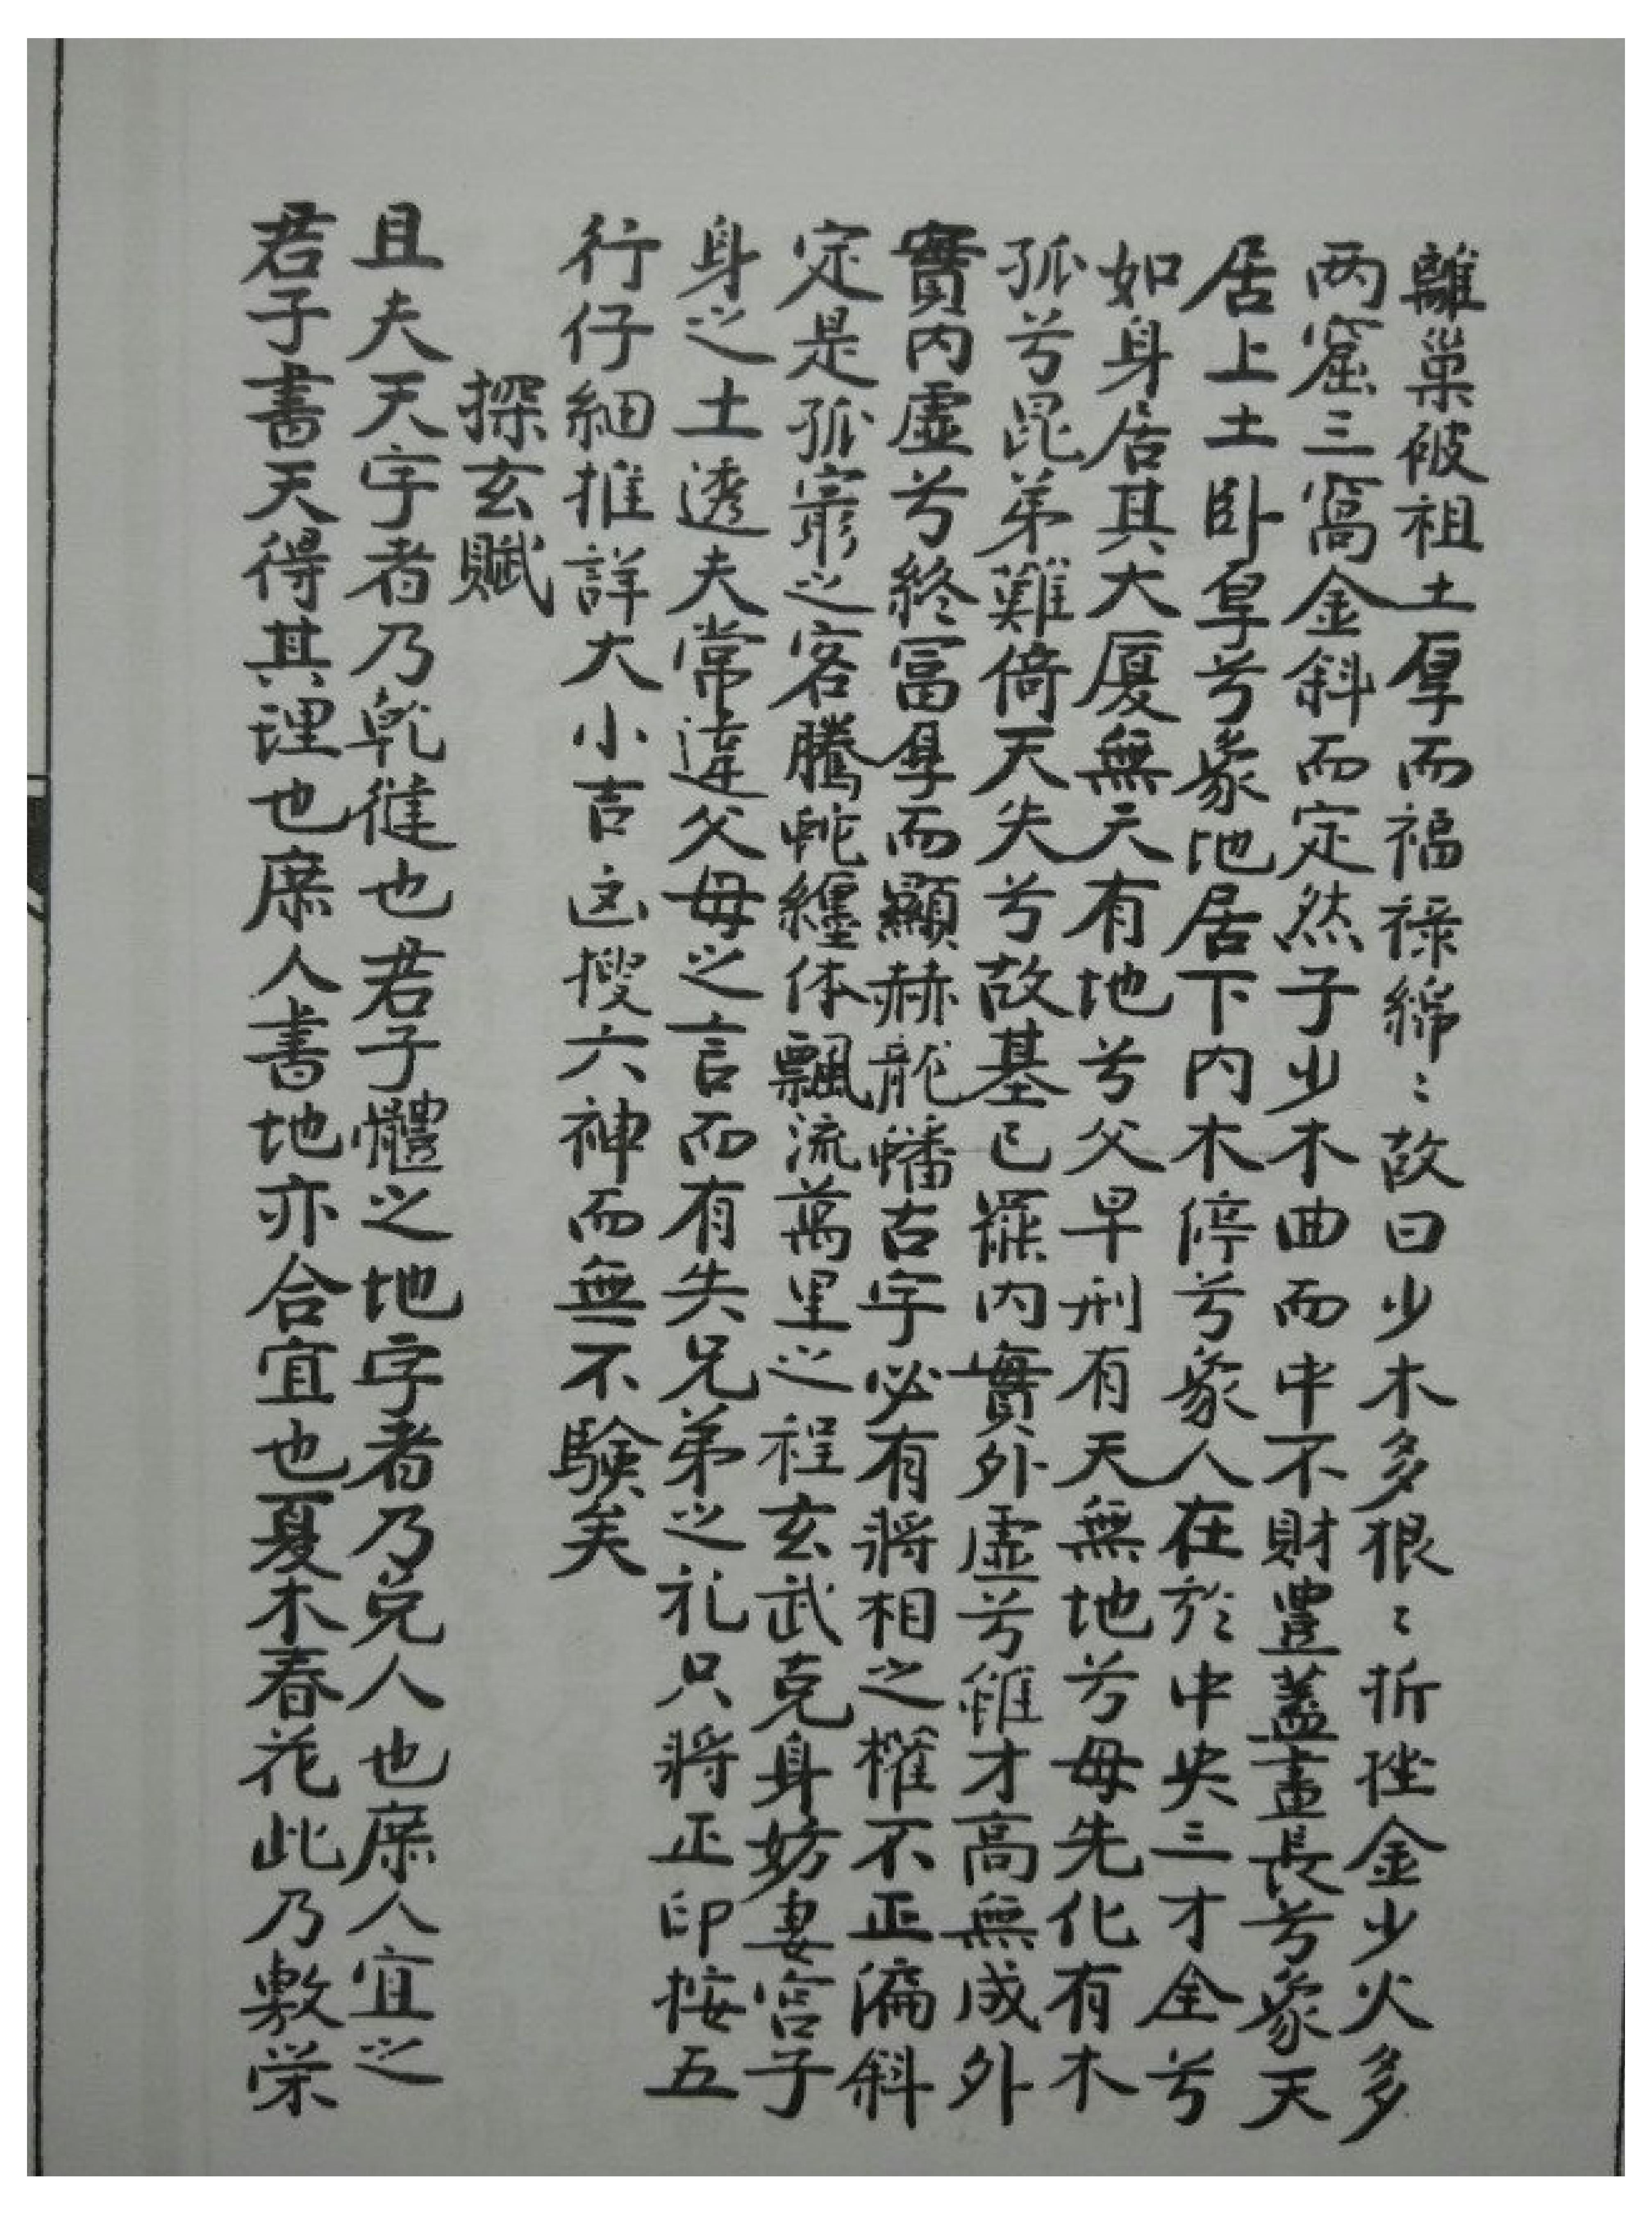 離巢破祖土厚而福祿綿〻故曰少木多根〻折挫金少火多
两窟三窩金斜而定然子少木曲而中不財豊蓋畫長兮象天
居上土卧厚兮象地居下内木停兮象人在於中央三才全兮
如身居其大厦無天有地兮父早刑有天無地兮母先化有木
孤兮昆弟難倚天失兮故基已罷内實外虚兮雖才高無成外
實内虚兮終冨厚而顯赫龍蟠古字必有將相之權不正漏斜
定是孤窮之客騰蛇纏体飄流萬里之程玄武克身妨妻宫子
身之土透夫常違父母之言而有失兄弟之礼只將正印按五
行仔細推詳大小吉这搜六神而無不験矣
探玄賦
且夫天字者乃乾健也君子體之地字者乃兑人也庶人宜之
君子書天得其理也庶人書地亦合宜也夏木春花此乃敷荣